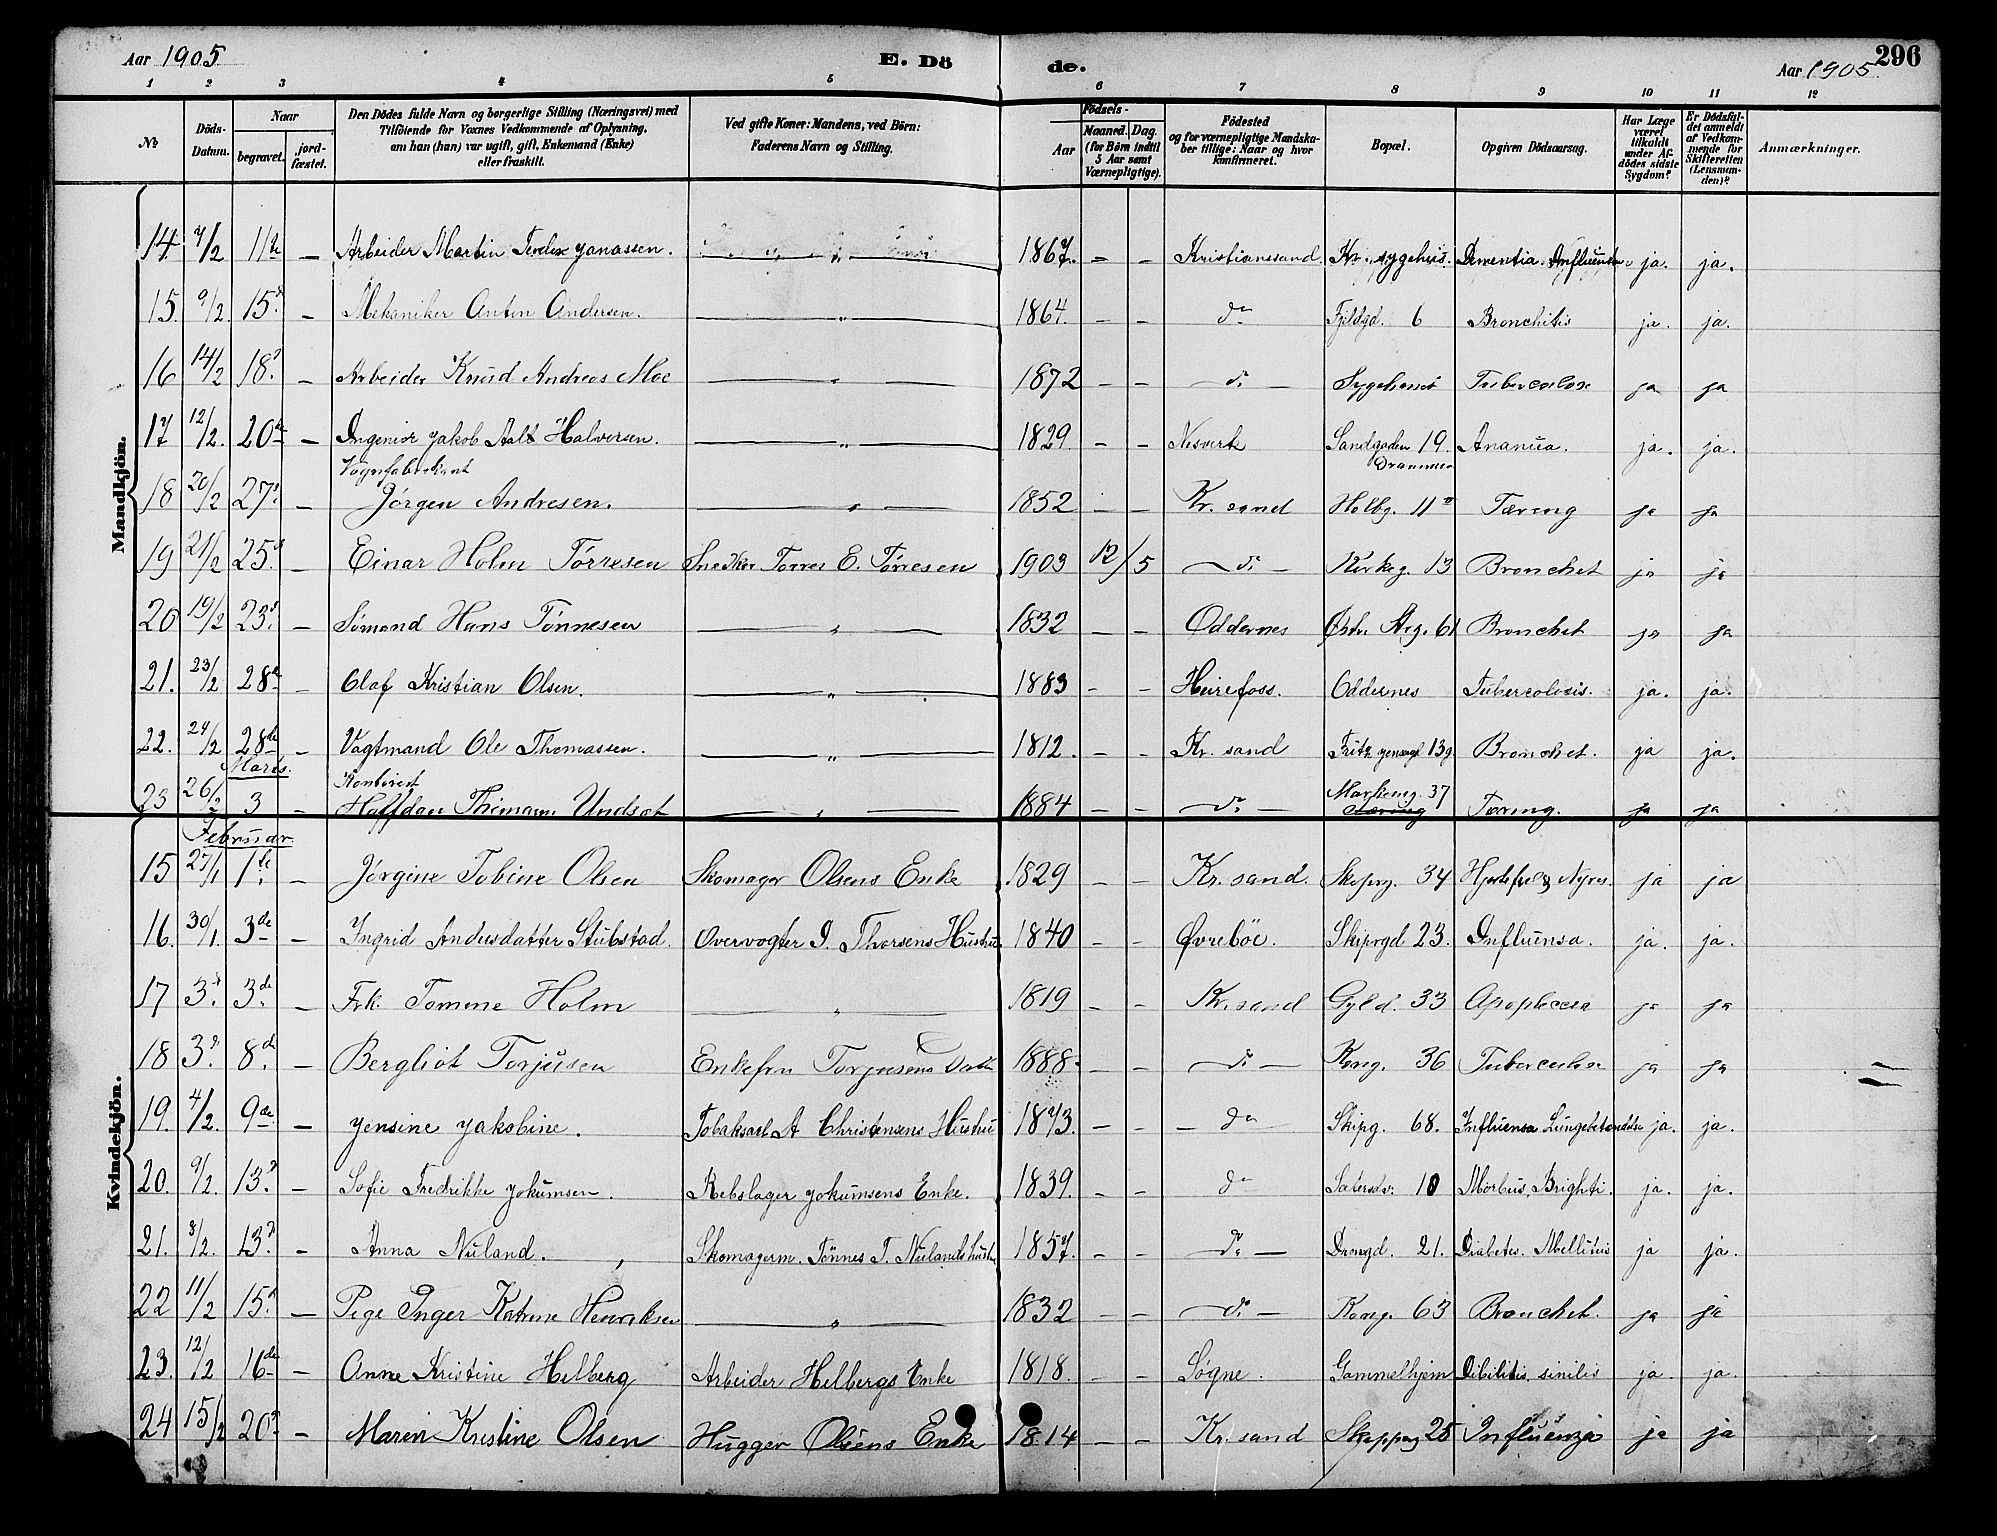 Aar 1905
E. Dö
de.
296
Aar 1905.
1 2 3 4 5 6 7 8 9 10 11 12
No
Döds-Datum.
Naar
begravet.
jordfæstet.
Den Dødes fulde Navn og borgerlige Stilling (Næringsvei) med
Tilföiende for Voxnes Vedkommende af Oplysning,
om han (hun) var ugift, gift, Enkemand (Enke)
eller fraskilt.
Ved gifte Koner: Mandens, ved Börn:
Faderens Navn og Stilling.
Födsels-
Aar
Maaned. Dag.
(for Börn indtil
5 Aar samt
Værnepligtige).
Födested
og for værnepligtige Mandskaber tillige: Naar og hvor
konfirmeret.
Bopæl.
Opgiven Dödsaarsag.
Har Læge
været
tilkaldt
under Afdödes sidste
Sygdom?
Er Dödsfaldet anmeldt
af Vedkommende for
Skifteretten
(Lensmanden)?
Anmærkninger.
Mandkjön.
14. 7/2 11te — Arbeider Martin Janassen. 1867. — — Kristianssand. Kr. sygehus. Dementia. Influenza ja. ja.
15. 9/2. 15d — Mekaniker Anton Andersen. — „ — 1864. — — do Fjeldgd. 6 Bronchitis ja. ja.
16 14/2 18d — Arbeider Knud Andreas Moe — „ — 1872 — — do — Sygehuset Tuberculose ja ja
17 12/2. 20de — Ingeniør Jakob Aalt Halvorsen. — „ — 1829. — — Nesverk Sandgaden 19. Drammen ja. ja.
Vognfabrikant
18 20/2 27d — Jørgen Andresen. — „ — 1852 — — Kr. sand Holbg. 11 Tæring ja ja
19 21/2 25d — Einar Holm Tørresen Snedker Torres E. Tørresen 1903 12/5 — do — Kirkeg. 13 Bronchit ja ja
20 19/2 23d — Sømand Hans Tønnesen — „ — 1832 — — Oddernes Østr. Strg. 61 Bronchit ja ja
21. 23/2 28de — Olaf Kristian Olsen. — „ — 1883 — — Heirefoss. Oddernes Tubercolosis. ja. ja.
22. 24/2 28de — Vagtmand Ole Thomassen. — „ — 1812. — — Kr. sand Fritz Jensgd 13g Bronchit. ja ja.
Marts.
Kontorist
23 26/2 3 — Haffdan Thimann Undset — „ — 1884 — — do — Markeng. 37 Tæring. ja ja
Kvindekjön.
Februar.
15 27/1 1te — Jørgine Tobine Olsen Skomager Olsens Enke 1829 — — Kr. sand. Skipprg. 34 Hjertefeil & Nyres. ja ja
16. 30/1. 3de — Ingrid Andersdatter Stubstad Overvogter I. Thorsens Hustru 1840 — — Øvrebøe. Skiprgd 23. Influensa. ja. ja.
17 3d. 3de — Frk. Tomine Holm — „ — 1819 — — Kr. sand Gyld. 33 Apoplecsia ja ja
18 3d 8de — Bergliot Torjusen Enkefru Torjusens Datter 1888. — — do — Kong. 36 Tuberculose ja ja
19. 4/2. 9de — Jensine Jakobine. Tobaksarb. A Christensens Hustru 1873. — — do Skipg. 68. Influensa Lungebetændelse ja. ja.
20. 9/2. 13d — Sofie Fredrikke Jokumsen. Rebslager Jokumsens Enke. 1839. — — do Sætersdr. 10 Morbus, Brighti. ja. ja.
21. 8/2. 13d — Anna Nuland. Skomagerm. Tönnes T. Nulands hustru 1857. — — do — Drongd. 21. Diabetes. Mellitus ja ja.
22 11/2 15d — Pige Inger Katrine Henriksen — „ — 1832 — — do — Kong. 63 Bronchit. ja ja
23. 12/2 16de — Anne Kristine Helberg Arbeider Helbergs Enke 1818. — — Søgne. Gammelhjem Debilitis, sinilis ja. ja.
24 15/2 20d — Maren Kristine Olsen Hugger Olsens Enke 1814 — — Kr. sand Skipprg 25 Influenza ja ja